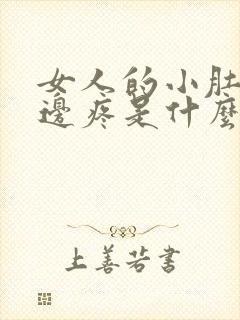 女人的小肚
邊疼是什麼
上善若書